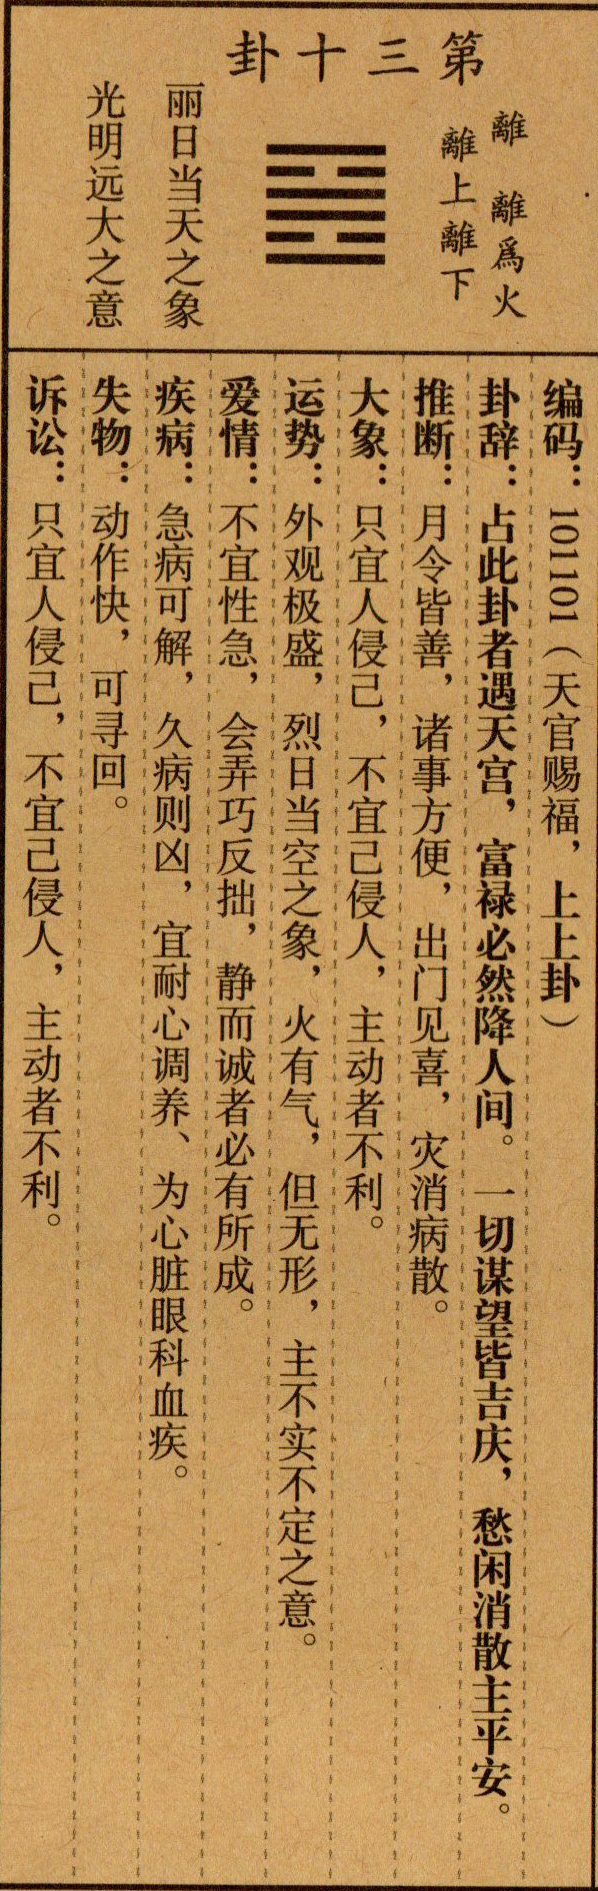 第三十卦
離 離爲火
離上離下
丽日当天之象
光明远大之意
编码：101101（天官赐福，上上卦）
卦辞：占此卦者遇天宫，富禄必然降人间。一切谋望皆吉庆，愁闲消散主平安。
推断：月令皆善，诸事方便，出门见喜，灾消病散。
大象：只宜人侵己，不宜己侵人，主动者不利。
运势：外观极盛，烈日当空之象，火有气，但无形，主不实不定之意。
爱情：不宜性急，会弄巧反拙，静而诚者必有所成。
疾病：急病可解，久病则凶，宜耐心调养、为心脏眼科血疾。
失物：动作快，可寻回。
诉讼：只宜人侵己，不宜己侵人，主动者不利。